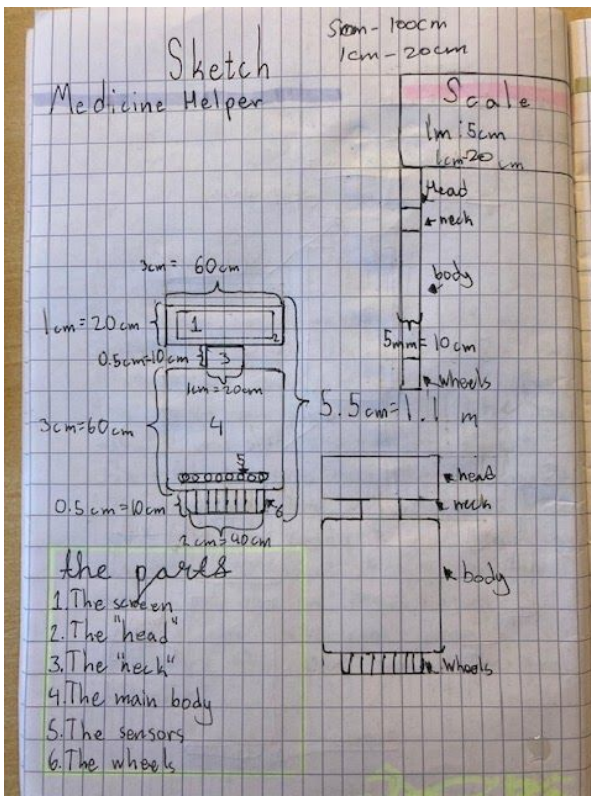 Sketch
Medicine Helper
5cm - 100cm
1cm - 20cm
Scale
1m : 5cm
1cm - 20 cm
Head
neck
body
5mm = 10cm
wheels
3cm = 60cm
1cm = 20cm
1
2
0.5cm = 10cm
3
1cm = 20cm
3cm = 60cm
4
5
0.5cm = 10cm
6
2cm = 40cm
5.5cm = 1.1 m
head
neck
body
wheels
the parts
1. The screen
2. The "head"
3. The "neck"
4. The main body
5. The sensors
6. The wheels